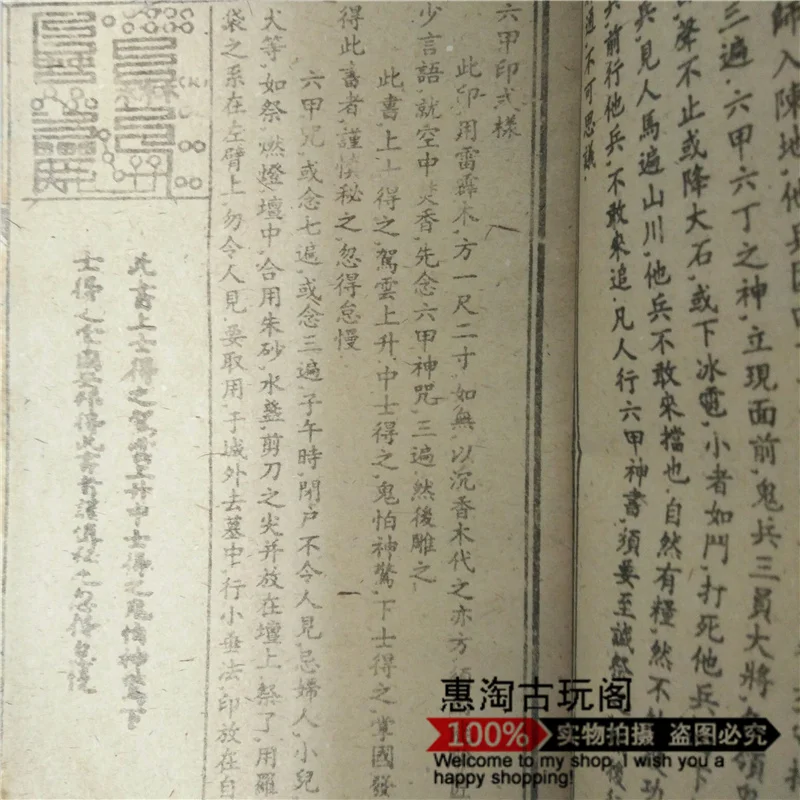 師入陳地
三遍六甲六丁之神立現面前鬼兵三員大將
聲不止或降大石或下冰電小者如鬥打死他兵
兵見人馬遍山川他兵不敢來擋也自然有糧然不
兵前行他兵不敢來追凡人行六甲神書須要至誠祭
不可思議
六甲印式樣
此印用雷霹木方一尺二寸如無以沉香木代之亦方
少言語就空中焚香先念六甲神咒三遍然後雕之
此書上士得之駕雲上升中士得之鬼怕神驚下士得之掌國發
得此書者謹慎秘之忽得怠慢
六甲咒或念七遍或念三遍子午時閉戶不令人見忌婦人小兒
犬等如祭燃燈壇中合用朱砂水盞剪刀之尖并放在壇上祭了用羅
袋之系在左臂上勿令人見要取用于城外去墓中行小垂法印放在自
此書上士得之駕雲上升中士得之鬼怕神驚下
士得之掌國
惠淘古玩阁
100% 实物拍摄 盗图必究
Welcome to my shop, I wish you a
happy shopping!